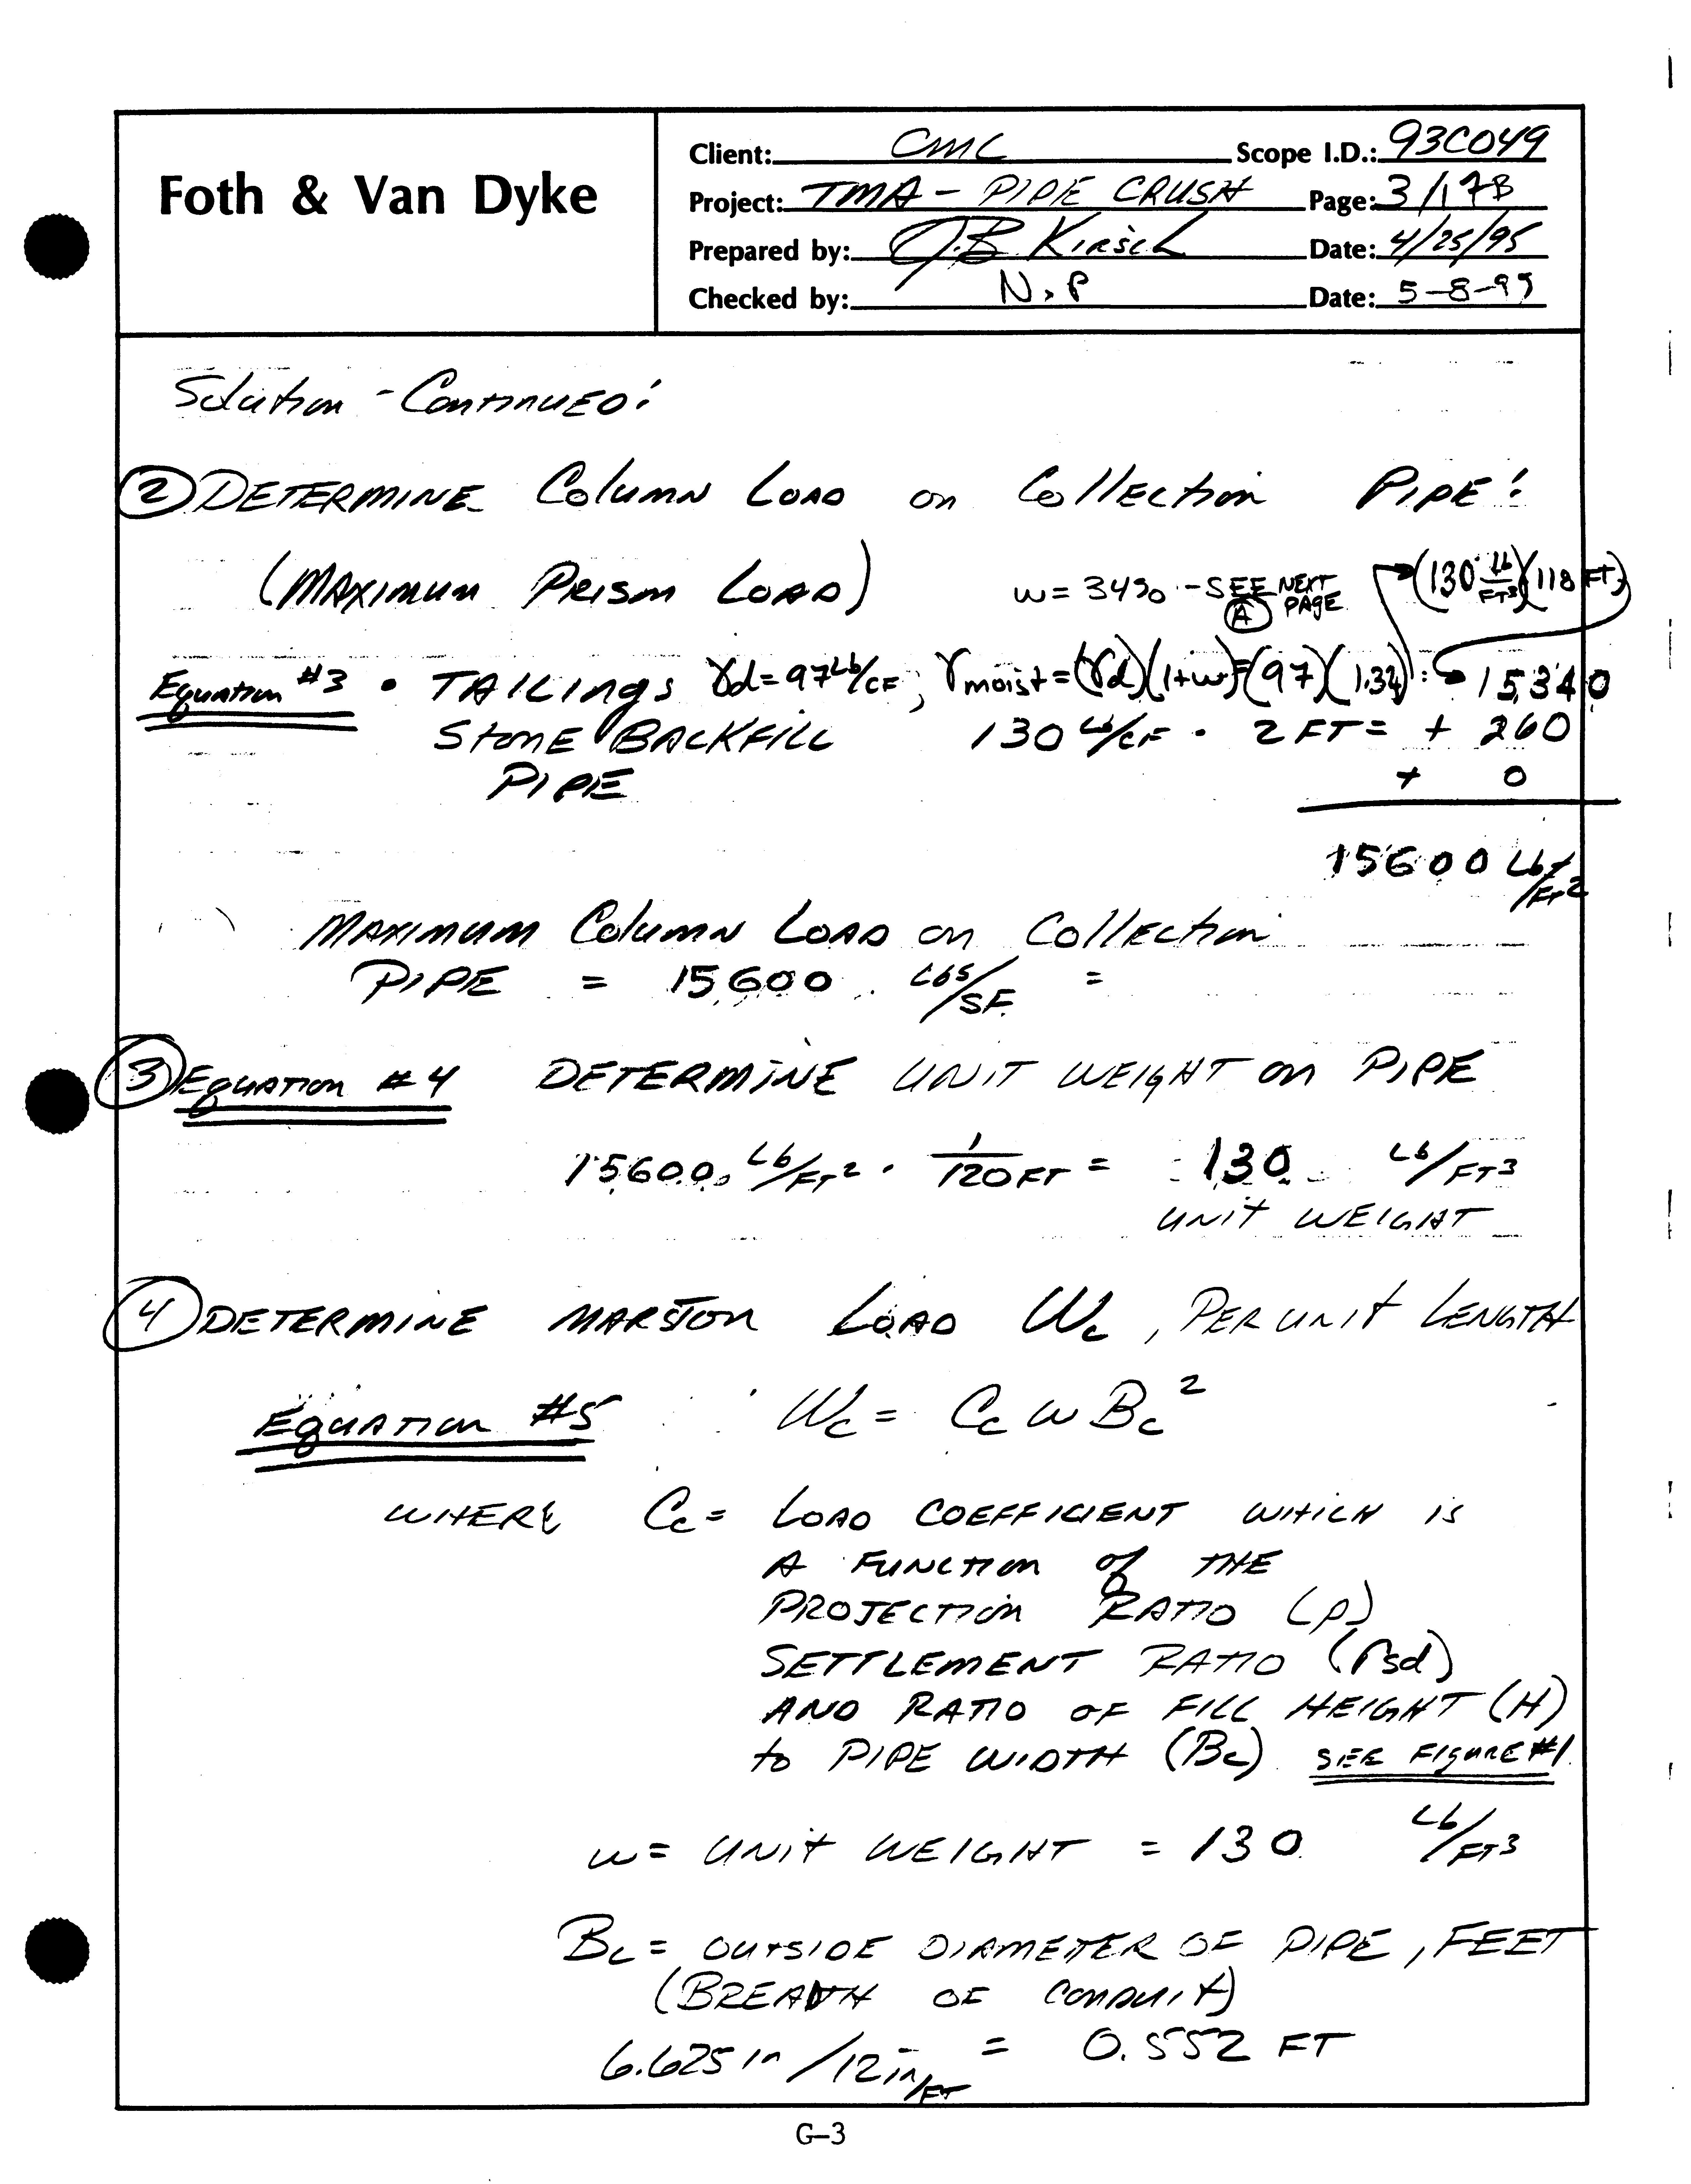 Foth & Van Dyke
Client: CMC Scope I.D.: 93C049
Project: TMA - PIPE CRUSH Page: 3/17B
Prepared by: J.B Kirsch Date: 4/25/95
Checked by: N.P Date: 5-8-95
Solution - Continued:
② DETERMINE Column LOAD on Collection PIPE:
(MAXIMUM PRISM LOAD) w = 34% - SEE NEXT PAGE Ⓐ (130 Lb/FT³)(118 FT)
Equation #3 • TAILINGS γd = 97 Lb/CF; γmoist = (γd)(1+w) = (97)(1.34) : 15340
STONE BACKFILL 130 Lb/CF · 2 FT = + 260
PIPE + 0
15600 Lb/FT²
MAXIMUM Column LOAD on Collection
PIPE = 15600 Lbs/SF. =
③ Equation #4 DETERMINE UNIT WEIGHT on PIPE
15600 Lb/FT² · 1/120 FT = 130 Lb/FT³
UNIT WEIGHT
④ DETERMINE MARSTON LOAD Wc, PER UNIT LENGTH
Equation #5 Wc = Cc w Bc²
WHERE Cc = LOAD COEFFICIENT WHICH IS
A FUNCTION of THE
PROJECTION RATIO (p)
SETTLEMENT RATIO (rsd)
AND RATIO OF FILL HEIGHT (H)
to PIPE WIDTH (Bc) SEE FIGURE #1
w = UNIT WEIGHT = 130 Lb/FT³
Bc = OUTSIDE DIAMETER OF PIPE, FEET
(BREADTH OF CONDUIT)
6.625 in / 12 in/FT = 0.552 FT
G-3